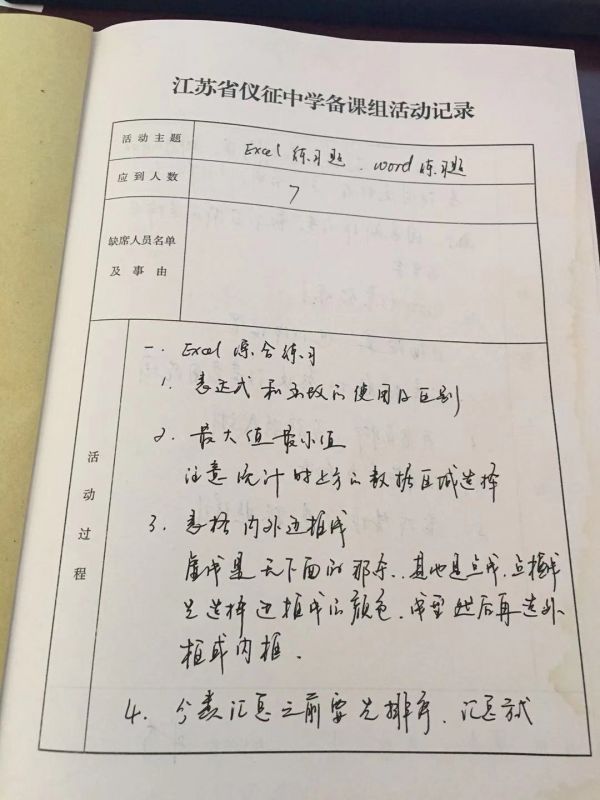 江苏省仪征中学备课组活动记录
活动主题 Excel 练习题、word 练习题
应到人数 7
缺席人员名单
及事由
活动过程
一. Excel 综合练习
1. 表达式和函数的使用及区别
2. 最大值最小值
注意统计时上方的数据区域选择
3. 表格内外边框线
虚线是无下面的那条.其他是点线,点横线
先选择边框线的颜色.线型然后再选外
框或内框.
4. 分类汇总之前要先排序.汇总方式